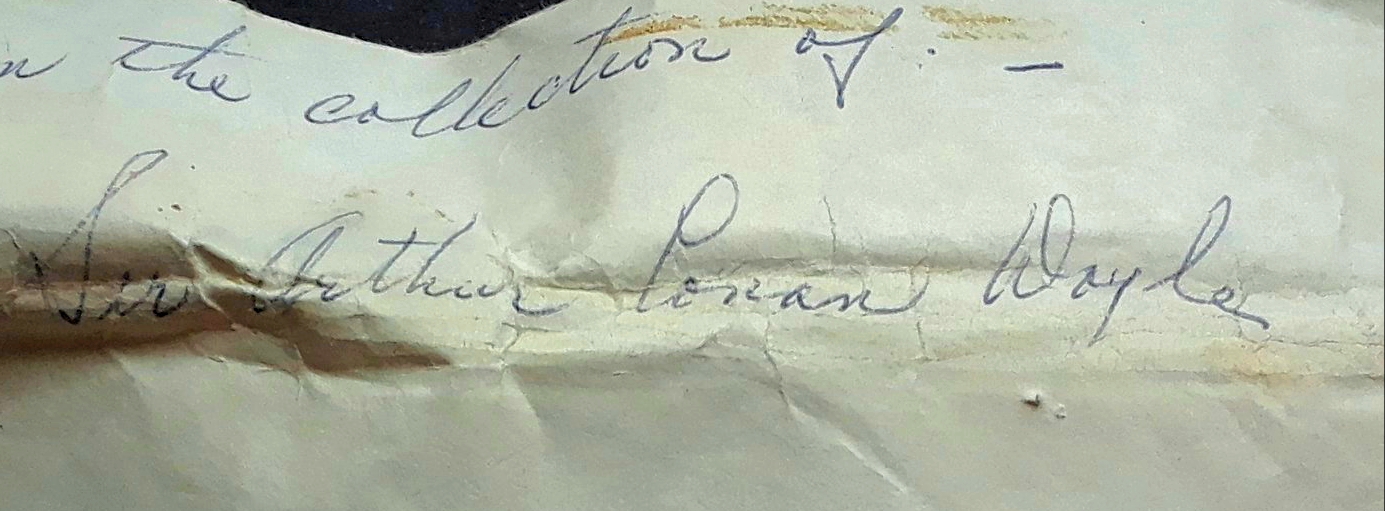 n the collection of. –
Sir Arthur Conan Doyle